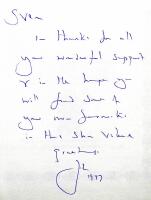 Sven
In thanks for all
your wonderful support
& in the hope you
will find some of
your own favourites
in this
Greetings
1997